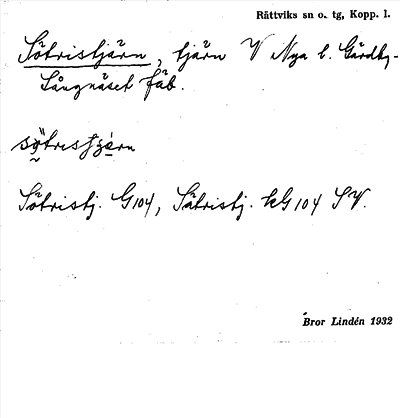 Rättviks sn o. tg, Kopp. l.
Sötristjärn, tjärn V Nya l. Gärdby-
Långnäset fäb.
sötristjärn
Sötristj. G104, Sätristj. kG104 SV.
Bror Lindén 1932